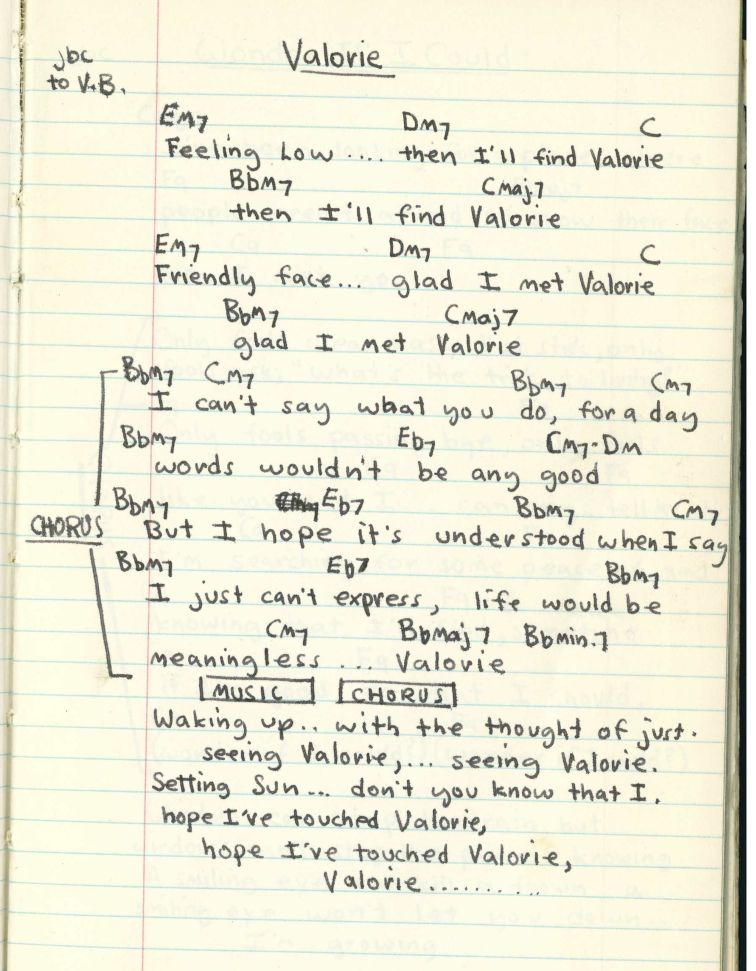 jbc
to V.B.
Valorie
Em7 Dm7 C
Feeling Low .... then I'll find Valorie
Bbm7 Cmaj.7
then I'll find Valorie
Em7 Dm7 C
Friendly face... glad I met Valorie
Bbm7 Cmaj7
glad I met Valorie
Bbm7 Cm7 Bbm7 Cm7
I can't say what you do, for a day
Bbm7 Eb7 Cm7-Dm
words wouldn't be any good
Bbm7 Eb7 Bbm7 Cm7
CHORUS But I hope it's understood when I say
Bbm7 Eb7 Bbm7
I just can't express, life would be
Cm7 BbMaj7 Bbmin.7
meaningless ... Valorie
MUSIC CHORUS
Waking up.. with the thought of just.
seeing Valorie,... seeing Valorie.
Setting Sun ... don't you know that I.
hope I've touched Valorie,
hope I've touched Valorie,
Valorie..........